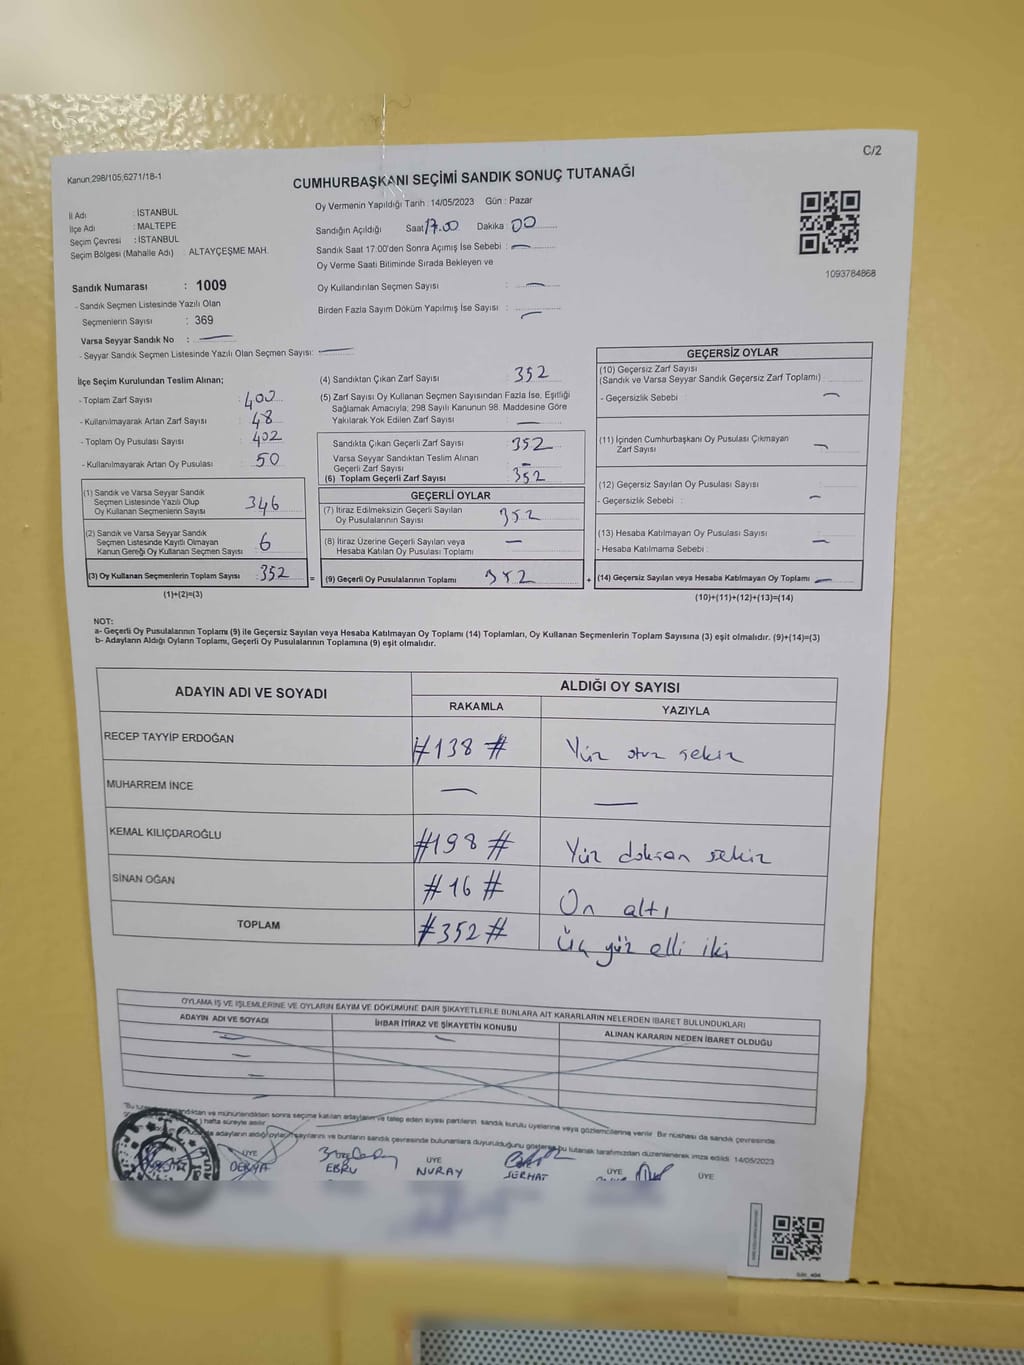 Kanun,298/105,6271/18-1
C/2
CUMHURBAŞKANI SEÇİMİ SANDIK SONUÇ TUTANAĞI
İl Adı : İSTANBUL
İlçe Adı : MALTEPE
Seçim Çevresi : İSTANBUL
Seçim Bölgesi (Mahalle Adı) : ALTAYÇEŞME MAH.
Oy Vermenin Yapıldığı Tarih : 14/05/2023 Gün : Pazar
Sandığın Açıldığı Saat 17.00 Dakika : 00
Sandık Saat 17:00'den Sonra Açımış İse Sebebi : —
Oy Verme Saati Bitiminde Sırada Bekleyen ve
Oy Kullandırılan Seçmen Sayısı : —
Birden Fazla Sayım Döküm Yapılmış İse Sayısı : —
1093784868
Sandık Numarası : 1009
- Sandık Seçmen Listesinde Yazılı Olan
Seçmenlerin Sayısı : 369
Varsa Seyyar Sandık No : —
- Seyyar Sandık Seçmen Listesinde Yazılı Olan Seçmen Sayısı: —
İlçe Seçim Kurulundan Teslim Alınan;
- Toplam Zarf Sayısı : 400
- Kullanılmayarak Artan Zarf Sayısı : 48
- Toplam Oy Pusulası Sayısı : 402
- Kullanılmayarak Artan Oy Pusulası : 50
(1) Sandık ve Varsa Seyyar Sandık
Seçmen Listesinde Yazılı Olup
Oy Kullanan Seçmenlerin Sayısı : 346
(2) Sandık ve Varsa Seyyar Sandık
Seçmen Listesinde Kayıtlı Olmayan
Kanun Gereği Oy Kullanan Seçmen Sayısı : 6
(3) Oy Kullanan Seçmenlerin Toplam Sayısı : 352 =
(1)+(2)=(3)
(4) Sandıktan Çıkan Zarf Sayısı : 352
(5) Zarf Sayısı Oy Kullanan Seçmen Sayısından Fazla İse, Eşitliği
Sağlamak Amacıyla; 298 Sayılı Kanunun 98. Maddesine Göre
Yakılarak Yok Edilen Zarf Sayısı : —
Sandıkta Çıkan Geçerli Zarf Sayısı : 352
Varsa Seyyar Sandıktan Teslim Alınan
Geçerli Zarf Sayısı : —
(6) Toplam Geçerli Zarf Sayısı : 352
GEÇERLİ OYLAR
(7) İtiraz Edilmeksizin Geçerli Sayılan
Oy Pusulalarının Sayısı : 352
(8) İtiraz Üzerine Geçerli Sayılan veya
Hesaba Katılan Oy Pusulası Toplamı : —
(9) Geçerli Oy Pusulalarının Toplamı : 352 +
GEÇERSİZ OYLAR
(10) Geçersiz Zarf Sayısı
(Sandık ve Varsa Seyyar Sandık Geçersiz Zarf Toplamı) :
- Geçersizlik Sebebi : —
(11) İçinden Cumhurbaşkanı Oy Pusulası Çıkmayan
Zarf Sayısı : —
(12) Geçersiz Sayılan Oy Pusulası Sayısı :
- Geçersizlik Sebebi : —
(13) Hesaba Katılmayan Oy Pusulası Sayısı :
- Hesaba Katılmama Sebebi : —
(14) Geçersiz Sayılan veya Hesaba Katılmayan Oy Toplamı : —
(10)+(11)+(12)+(13)=(14)
NOT:
a- Geçerli Oy Pusulalarının Toplamı (9) ile Geçersiz Sayılan veya Hesaba Katılmayan Oy Toplamı (14) Toplamları, Oy Kullanan Seçmenlerin Toplam Sayısına (3) eşit olmalıdır. (9)+(14)=(3)
b- Adayların Aldığı Oyların Toplamı, Geçerli Oy Pusulalarının Toplamına (9) eşit olmalıdır.
ADAYIN ADI VE SOYADI ALDIĞI OY SAYISI
RAKAMLA YAZIYLA
RECEP TAYYİP ERDOĞAN #138# Yüz otuz sekiz
MUHARREM İNCE — —
KEMAL KILIÇDAROĞLU #198# Yüz doksan sekiz
SİNAN OĞAN #16# On altı
TOPLAM #352# Üç yüz elli iki
OYLAMA İŞ VE İŞLEMLERİNE VE OYLARIN SAYIM VE DÖKÜMÜNE DAİR ŞİKAYETLERLE BUNLARA AİT KARARLARIN NELERDEN İBARET BULUNDUKLARI
ADAYIN ADI VE SOYADI İHBAR İTİRAZ VE ŞİKAYETİN KONUSU ALINAN KARARIN NEDEN İBARET OLDUĞU
ve mühürlendikten sonra seçime katılan adayların ve talep eden siyasi partilerin sandık kurulu üyelerine veya gözlemcilerine verilir. Bir nüshası da sandık çevresinde
hafta süreyle asılır.
adayların aldığı oyların sayılarını ve bunların sandık çevresinde bulunanlara duyurulduğunu gösteren bu tutanak tarafımızdan düzenlenerek imza edildi. 14/05/2023
ÜYE ÜYE ÜYE ÜYE
DERYA EBRU NURAY SERHAT